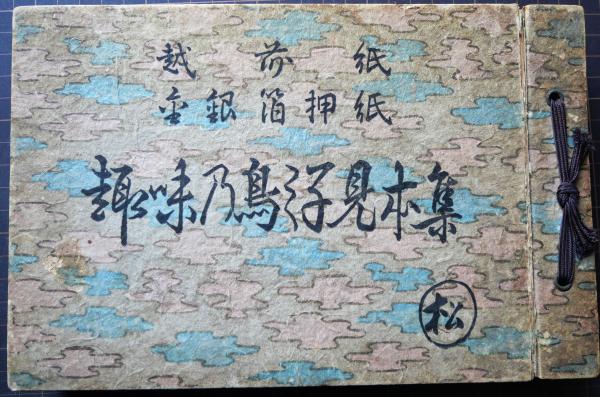 越前紙
金銀箔押紙
趣味乃鳥洋見本集
松